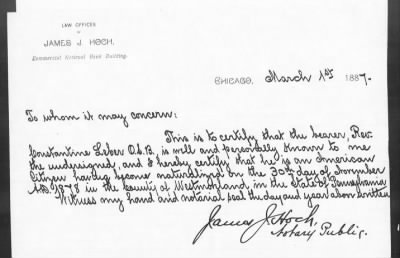 LAW OFFICES
OF
JAMES J. HOCH,
Commercial National Bank Building.
CHICAGO, March 1st 1887.
To whom it may concern:
This is to certify that the bearer, Rev.
Constantine Leber O.S.B. is well and personally known to me
the undersigned, and I hereby certify that he is an American
Citizen having become naturalized on the 30th day of November
A.D. 1878 in the County of Westmoreland, in the State of Pennsylvania
Witness my hand and notarial seal the day and year above written
James J. Hoch,
Notary Public.